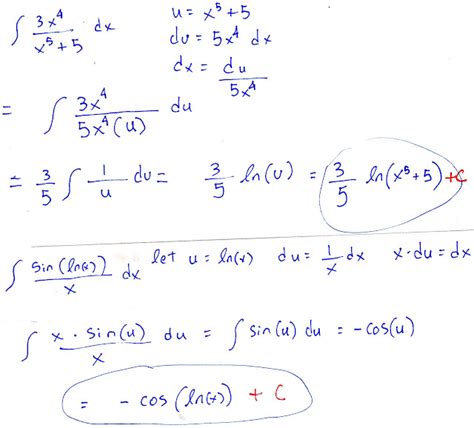 ∫ 3x⁴/(x⁵+5) dx   u = x⁵+5
du = 5x⁴ dx
dx = du/(5x⁴)
= ∫ 3x⁴/(5x⁴(u)) du
= 3/5 ∫ 1/u du = 3/5 ln(u) = 3/5 ln(x⁵+5) +C
∫ sin(ln(x))/x dx let u = ln(x) du = 1/x dx x·du = dx
∫ x·sin(u)/x du = ∫ sin(u) du = -cos(u)
= - cos(ln(x)) + C